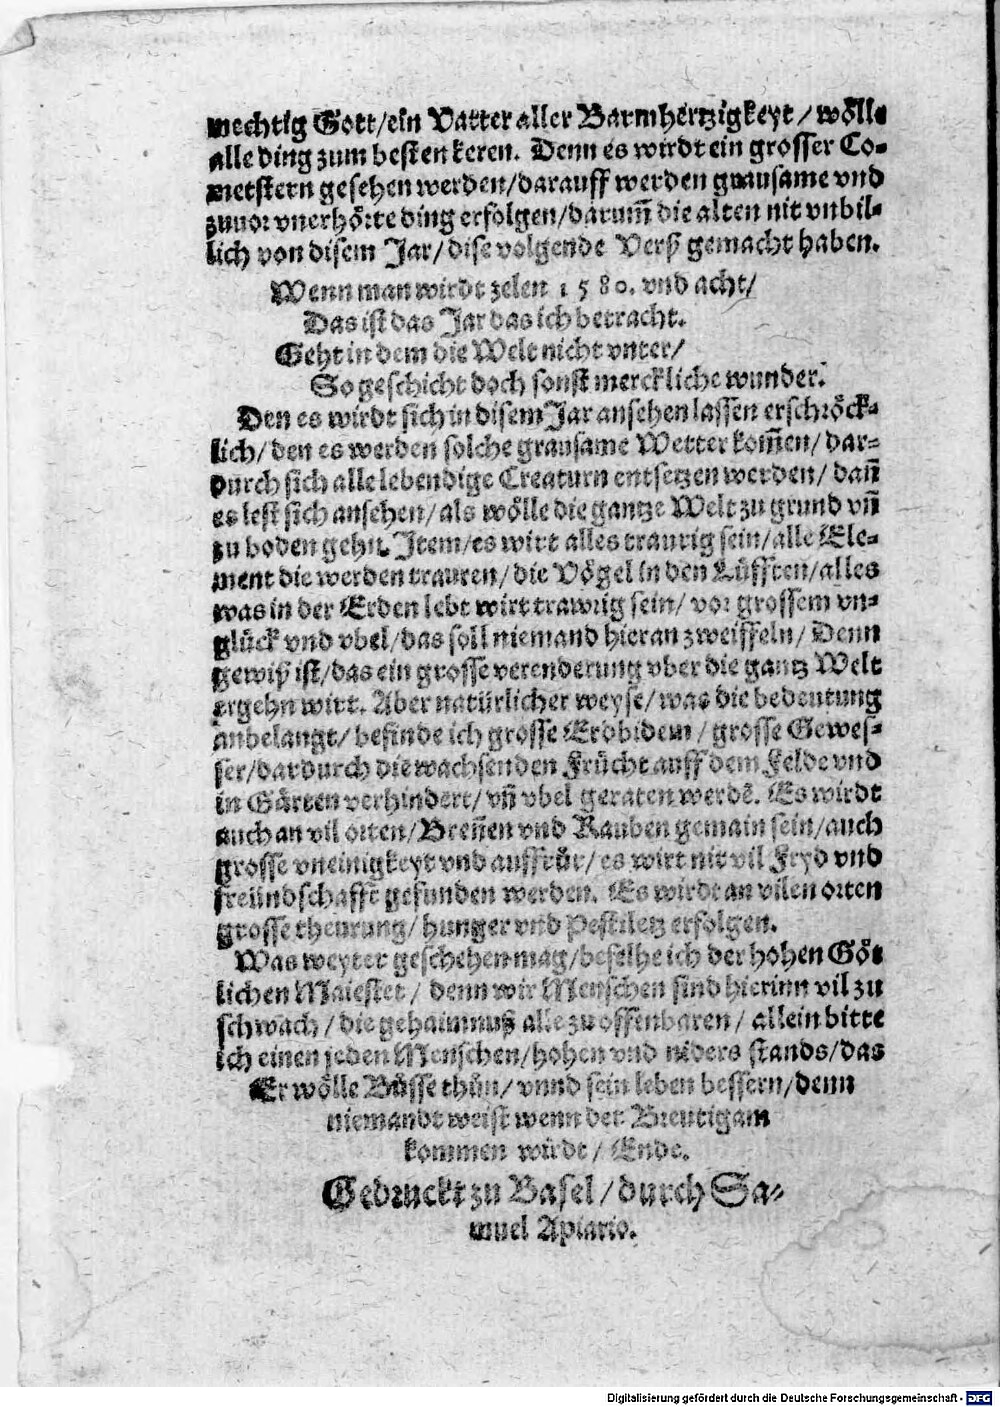 mechtig Gott/ein Vatter aller Barmhertzigkeyt/wölle
alle ding zum besten keren. Denn es wirdt ein grosser Co-
metstern gesehen werden/darauff werden grausame vnd
zuuor vnerhörte ding erfolgen/darum̃ die alten nit vnbil-
lich von disem Jar/dise volgende Verß gemacht haben.
Wenn man wirdt zelen 1580. vnd acht/
Das ist das Jar das ich betracht.
Geht in dem die Welt nicht vnter/
So geschicht doch sonst merckliche wunder.
Den es wirdt sich in disem Jar ansehen lassen erschröck-
lich/den es werden solche grausame Wetter kom̃en/dar-
durch sich alle lebendige Creaturn entsetzen werden/dañ
es lest sich ansehen/als wölle die gantze Welt zu grund vñ
zu boden gehn. Item/es wirt alles traurig sein/alle Ele-
ment die werden trauren/die Vögel in den Lüfften/alles
was in der Erden lebt wirt trawrig sein/vor grossem vn-
glück vnd vbel/das soll niemand hieran zweiffeln/Denn
gewiß ist/das ein grosse verenderung vber die gantz Welt
ergehn wirt. Aber natürlicher weyse/was die bedeutung
anbelangt/befinde ich grosse Erdbidem/grosse Gewes-
ser/dardurch die wachsenden Frücht auff dem Felde vnd
in Gärten verhindert/vñ vbel geraten werdẽ. Es wirdt
auch an vil orten/Breñen vnd Rauben gemain sein/auch
grosse vneinigkeyt vnd auffrůr/es wirt nit vil Fryd vnd
freündschafft gefunden werden. Es wirdt an vilen orten
grosse theurung/hunger vnd Pestiletz erfolgen.
Was weyter geschehen mag/befelhe ich der hohen Göt
lichen Maiestet/denn wir Menschen sind hierinn vil zu
schwach/die gehaimnuß alle zu offenbaren/allein bitte
ich einen jeden Menschen/hohen vnd niders stands/das
Er wölle Bůsse thůn/vnnd sein leben bessern/denn
niemandt weist wenn der Breutigam
kommen wirdt/Ende.
Gedruckt zu Basel/durch Sa-
muel Apiario.
Digitalisierung gefördert durch die Deutsche Forschungsgemeinschaft - DFG